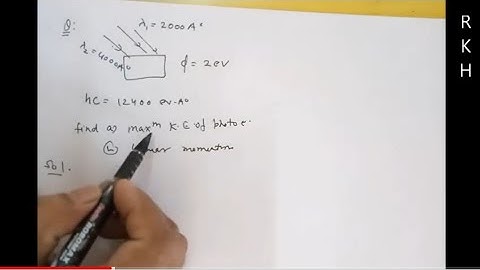 Q:
λ₁ = 2000 A°
λ₂ = 4000 A°
ϕ = 2 ev
hC = 12400 ev-A°
find a) maxᵐ K.E of photo e⁻
(b) linear momentum
Sol.
R
K
H